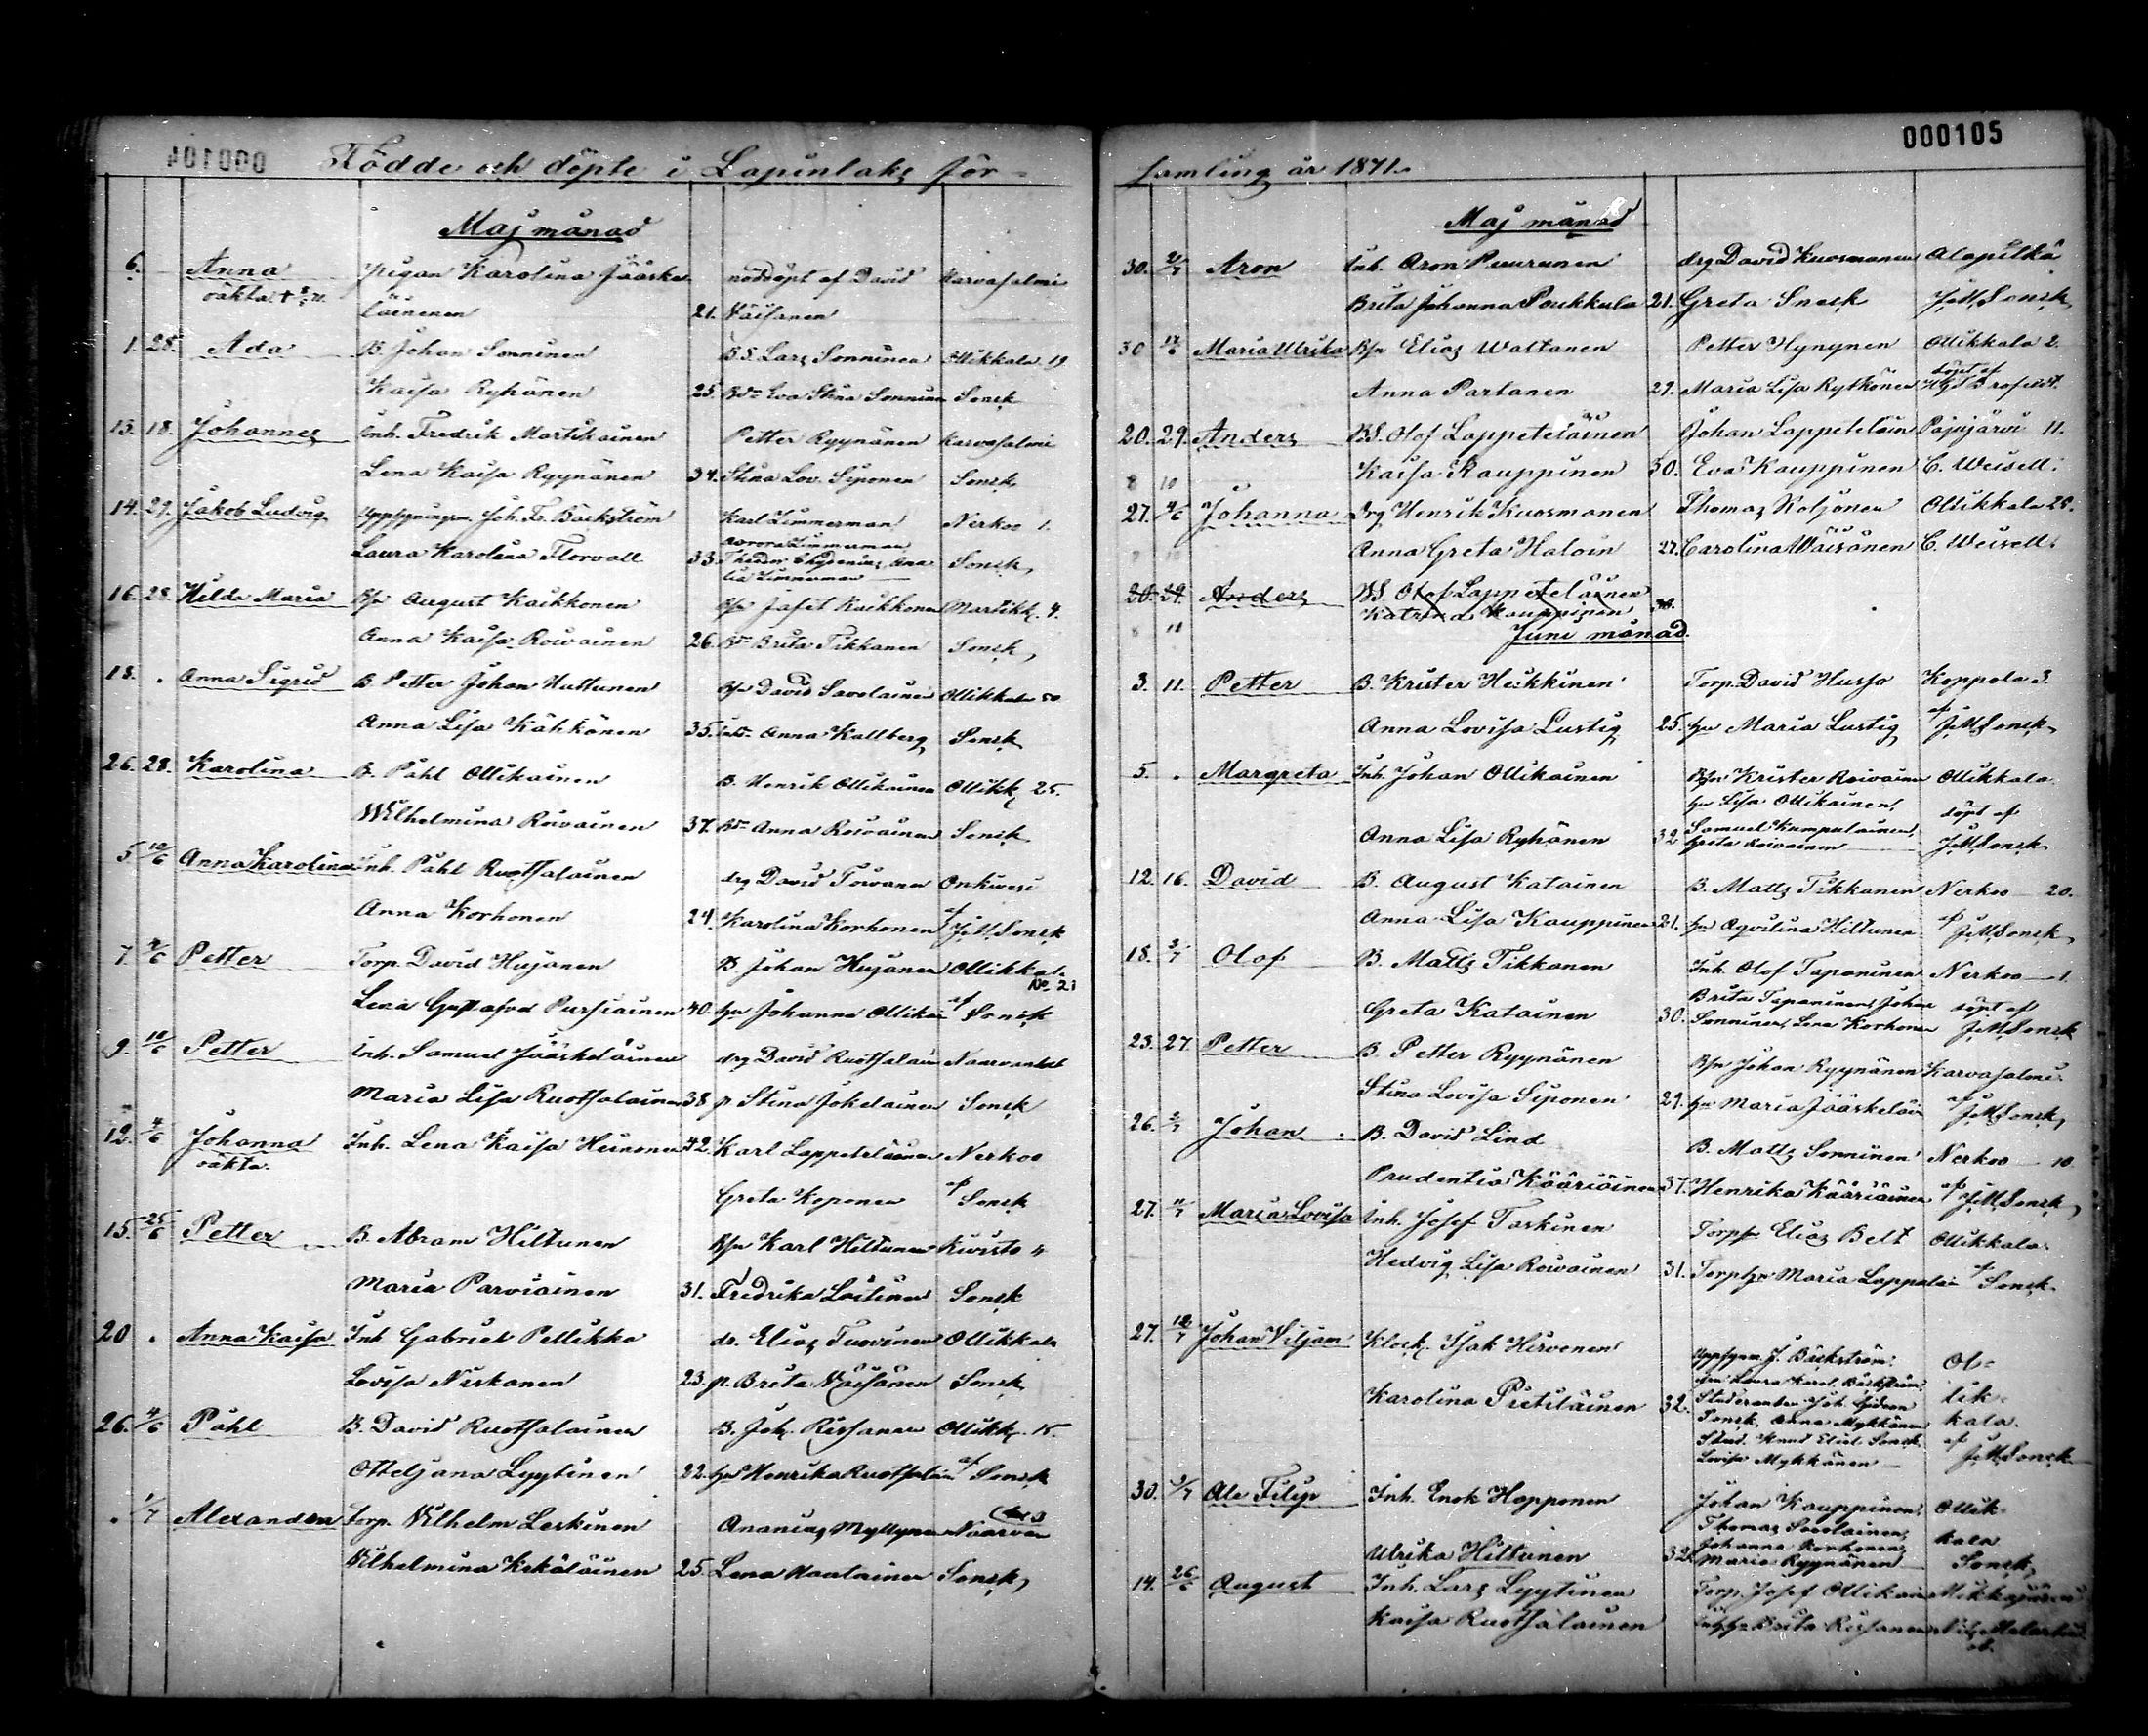 Födde och döpte i Lapinlaks för-
000104
Maj månad
6. Anna Pigan Karolina Jääske- nöddöpt af David Karvasalmi
oäkta läinenen 21. Väisänen
1. 28. Ada B. Johan Sonninen B.S. Lars Sonninen Ollikkala 19
Kaisa Ryhänen 25. Eva Stina Sonninen Sonck
13. 18. Johannes Inh. Fredrik Martikainen Petter Ryynänen Karvasalmi
Lena Kaisa Ryynänen 34. Stina Lov. Siponen Sonck
14. 29. Jakob Ludvig Uppsyningsm. Joh. Fr. Bäckström Karl Zimmerman Nerkoo 1.
Aurora Zimmerman
Laura Karolina Florvall 33. Theodor Chydenius, Ama Sonck
lia Zimmerman
16. 28. Hilda Maria Bsn August Kaikkonen Bsn Jafet Kaikkonen Martikk. 4.
Anna Kaisa Roivainen 26. Brita Tikkanen Sonck
18. . Anna Sigrid B. Petter Johan Huttunen Bsn David Savolainen Ollikkala 50
Anna Lisa Kähkönen 35. Anna Kallberg Sonck
26. 28. Karolina B. Påhl Ollikainen B. Henrik Ollikainen Ollikk. 25.
Wilhelmina Roivainen 37. Anna Roivainen Sonck
5 10/6 Anna Karolina Inh. Påhl Ruotsalainen drg David Toivanen Onkivesi
Anna Korhonen 24. Karolina Korhonen af J.M. Sonck
7 4/6 Petter Torp. David Hujanen B. Johan Hujanen Ollikkala
No 21
Lena Gustafva Pursiainen 40. hu Johanna Ollikai af Sonck
9. 10/6 Petter Inh. Samuel Jääskeläinen drg David Ruotsalain
Maria Lisa Ruotsalainen 38 p. Stina Jokelainen Sonck
12. 4/6 Johanna Inh. Lena Kaisa Heinonen 42. Karl Lappeteläinen Nerkoo
oäkta. Greta Koponen af Sonck
15. 25/6 Petter B. Abram Hiltunen Bsn Karl Hiltunen Kivistö
Maria Parviainen 31. Fredrika Loitinen Sonck
20 . Anna Kaisa Inh Gabriel Pellikka dr. Elias Tuovinen Ollikkala
Lovisa Niskanen 23. p. Brita Väisänen Sonck
26. 4/6 Påhl B. David Ruotsalainen B. Joh. Rissanen Ollikk. 15.
Otteljana Lyytinen 22. hu Henrika Ruotsalain af Sonck
. 1/7 Alexander Torp. Wilhelm Leskinen Ananias Myllynen Naarva
Wilhelmina Kekäläinen 25. Lena Sonck
000105
samling år 1871.
Maj månad
30. 2/7 Aron Inh. Aron Puurunen drg David Kuosmanen Alapitkä
Brita Johanna Poukkula 21. Greta Sneck J.M. Sonck
30 Maria Ulrika Bsn Elias Wattanen Petter Hynynen Ollikkala 2.
Anna Partanen 29. Maria Lisa Rytkönen döpt af
20. 29. Anders B.S. Olof Lappeteläinen Johan Lappeteläin Pajujärvi 11.
Kaisa Kauppinen 30. Eva Kauppinen C. Weisell.
27. 4/6 Johanna drg Henrik Kuosmanen Thomas Koljonen Ollikkala 28.
Anna Greta Haloin 27. Carolina Wäisänen C. Weisell.
20. 29. Anders B.S. Olof Lappeteläinen
Katrina Kauppinen 30.
Juni månad.
3. 11. Petter B. Krister Heikkinen Torp. David Husso Koppola 3.
Anna Lovisa Lustig 25. hu Maria Lustig af J.M. Sonck
5. . Margreta Inh. Johan Ollikainen Bsn Krister Roivainen Ollikkala
hu Lisa Ollikainen, döpt af
Anna Lisa Ryhänen 32 Samuel Kumpulainen, J.M. Sonck
Greta Roivainen
12. 16. David B. August Katainen B. Matts Tikkanen Nerkoo 20.
Anna Lisa Kauppinen 21. hu Aqvilina Hiltunen af J.M. Sonck
18. 3/7 Olof B. Matts Tikkanen Inh. Olof Taponinen Nerkoo 1.
Brita Tapaninen, Johan döpt af
Greta Katainen 30. Sonninen, Lena Korhonen J.M. Sonck
23. 27. Petter B. Petter Ryynänen Bsn Johan Ryynänen Karvasalmi.
Stina Lovisa Siponen 29. hu Maria Jääskeläin af J.M. Sonck
26. 2/7 Johan B. David Lind B. Matts Sonninen Nerkoo 10
Prudentia Kääriäinen 37. Henrika Kääriäinen af J.M. Sonck
27. Maria Lovisa Inh. Josef Taskinen Torpsn Elias Belt Ollikkala
Hedvig Lisa Roivainen 31. Torphu Maria Lappalai af Sonck
27. 12/7 Johan Viljam Klock. Isak Hirvonen Uppsynm. J. Bäckström Ol-
hu Laura Karol. Bäckström lik-
Karolina Pietiläinen 32. Studeranden Joh. Gideon kala.
Sonck, Anna Mykkänen
Stud. Knut Eliel Sonck af
Lovisa Mykkänen J.M. Sonck
30. 2/7 Ale Filip Inh. Enok Happonen Johan Kauppinen, Ollik-
Thomas Savolainen, kala
Johanna Korhonen
Ulrika Hiltunen 32. Maria Ryynänen Sonck
14. 26/6 August Inh. Lars Lyytinen Torp. Josef Ollikain
Kaisa Ruotsalainen Brita Rissanen